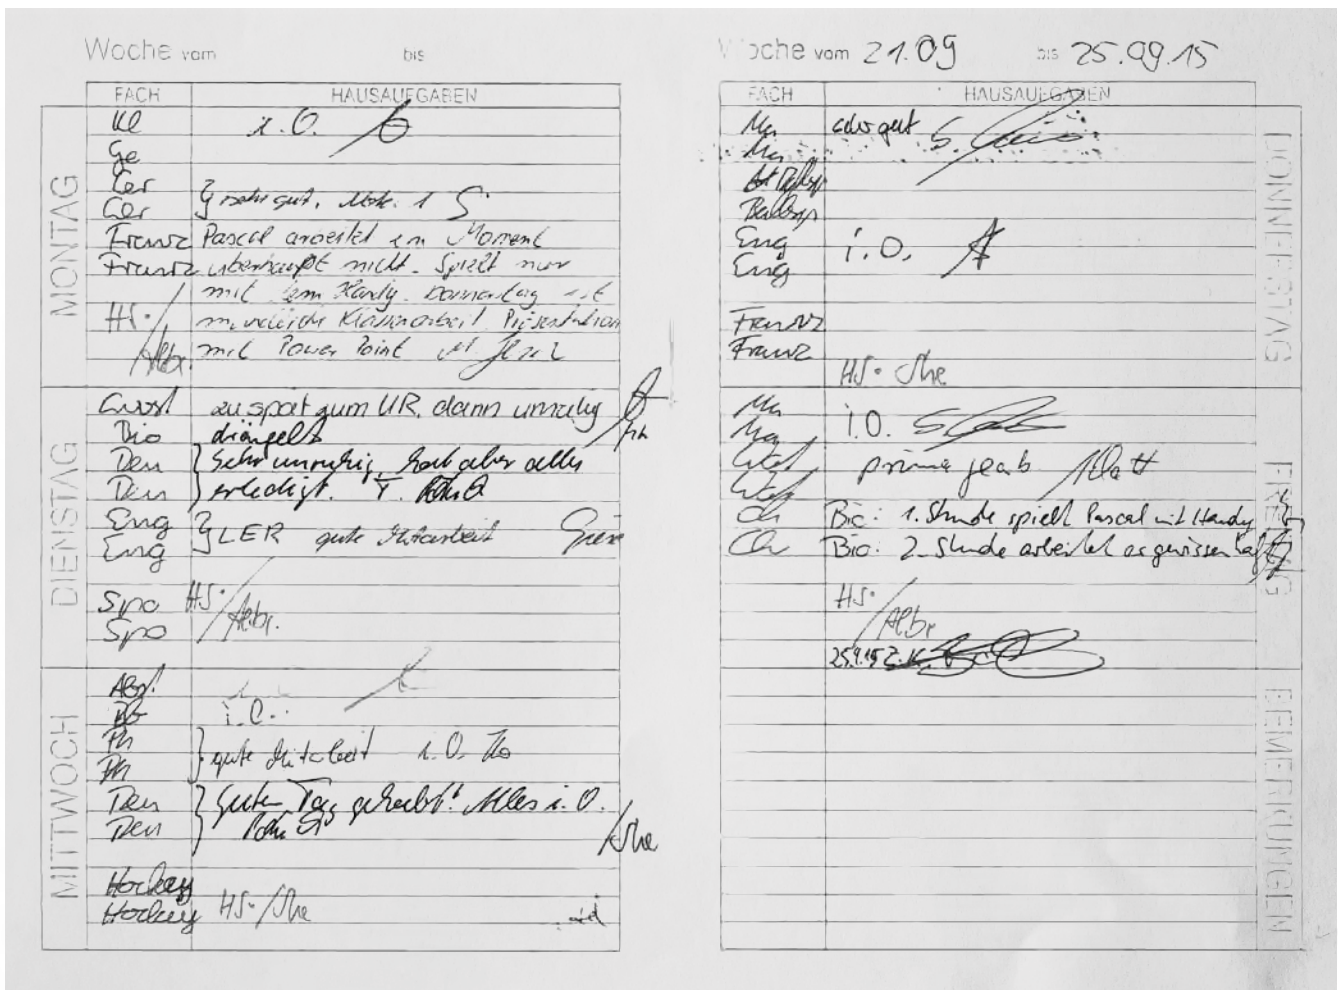 Woche vom bis
FACH HAUSAUFGABEN
MONTAG
Kl i.O.
Ge
Ler
Ler } sehr gut, Note 1
Franz Pascal arbeitet im Moment
Franz überhaupt nicht. Spielt nur
mit dem Handy. Donnerstag ist
HS. mündliche Klassenarbeit. Präsentation
/Albr. mit Power Point
DIENSTAG
zu spät zum UR, dann unruhig
Bio drängelt
Deu } Sehr unruhig, hat aber alles
Deu } erledigt.
Eng
Eng } LER gute Mitarbeit
Spo HS.
Spo /Albr.
MITTWOCH
i.O.
Ph
Ph } gute Mitarbeit i.O.
Deu } Guten Tag gehabt! Alles i.O.
Deu
Hockey
Hockey HS.
Woche vom 21.09 bis 25.09.15
FACH HAUSAUFGABEN
DONNERSTAG
Ma sehr gut
Ma
Eng i.O.
Eng
Franz
Franz
HS.
FREITAG
Ma
Ma i.O.
Wat prima gearb.
Wat
Ch Bio: 1. Stunde spielt Pascal mit Handy
Ch Bio: 2. Stunde arbeitet er gewissenhaft
HS.
/Albr
25.9.15
BEMERKUNGEN